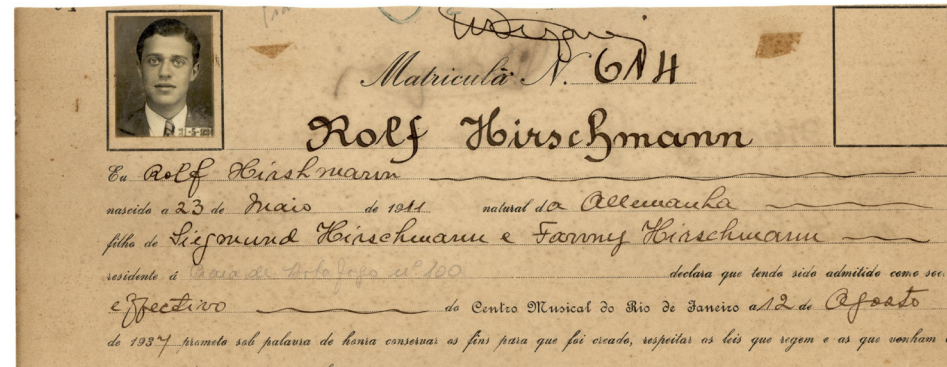 Matricula N. 614
Rolf Hirschmann
Eu Rolf Hirshmann
nascido a 23 de Maio de 1911 natural da Allemanha
filho de Siegmund Hirschmann e Fanny Hirschmann
residente á Praia de Botafogo nº 100 declara que tendo sido admitido como soc
effectivo do Centro Musical do Rio de Janeiro a 12 de Agosto
de 1937 prometo sob palavra de honra conservar os fins para que foi creado, respeitar as leis que regem e as que venham